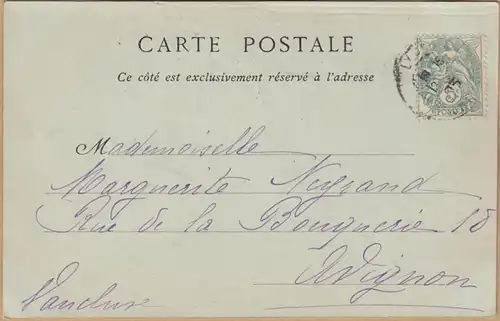 CARTE POSTALE
Ce côté est exclusivement réservé à l'adresse
Mademoiselle
Marguerite Neyrand
Rue de la Bouquerie 18
Avignon
Vaucluse